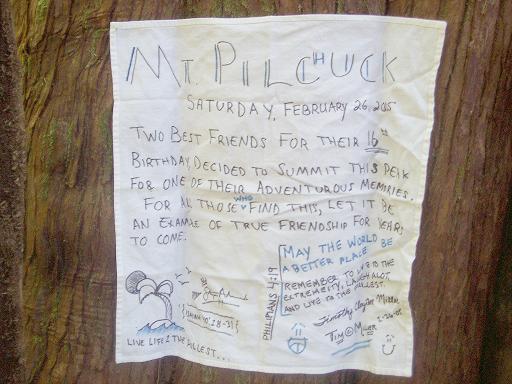 MT. PILCHUCK
SATURDAY, FEBRUARY 26, 2005
TWO BEST FRIENDS FOR THEIR 16TH
BIRTHDAY, DECIDED TO SUMMIT THIS PEIK
FOR ONE OF THEIR ADVENTUROUS MEMORIES.
FOR ALL THOSE WHO FIND THIS, LET IT BE
AN EXAMPLE OF TRUE FRIENDSHIP FOR YEARS
TO COME.
MAY THE WORLD BE
A BETTER PLACE
REMEMBER TO LIVE TO THE
EXTREMEITY, LAUGH ALOT,
AND LIVE TO THE FULLEST.
PHILIPIANS 4:19
ISAIAH 40:28-31
LIVE LIFE 2 THE FULLEST...
Timothy
TIM MILLER
2-26-05